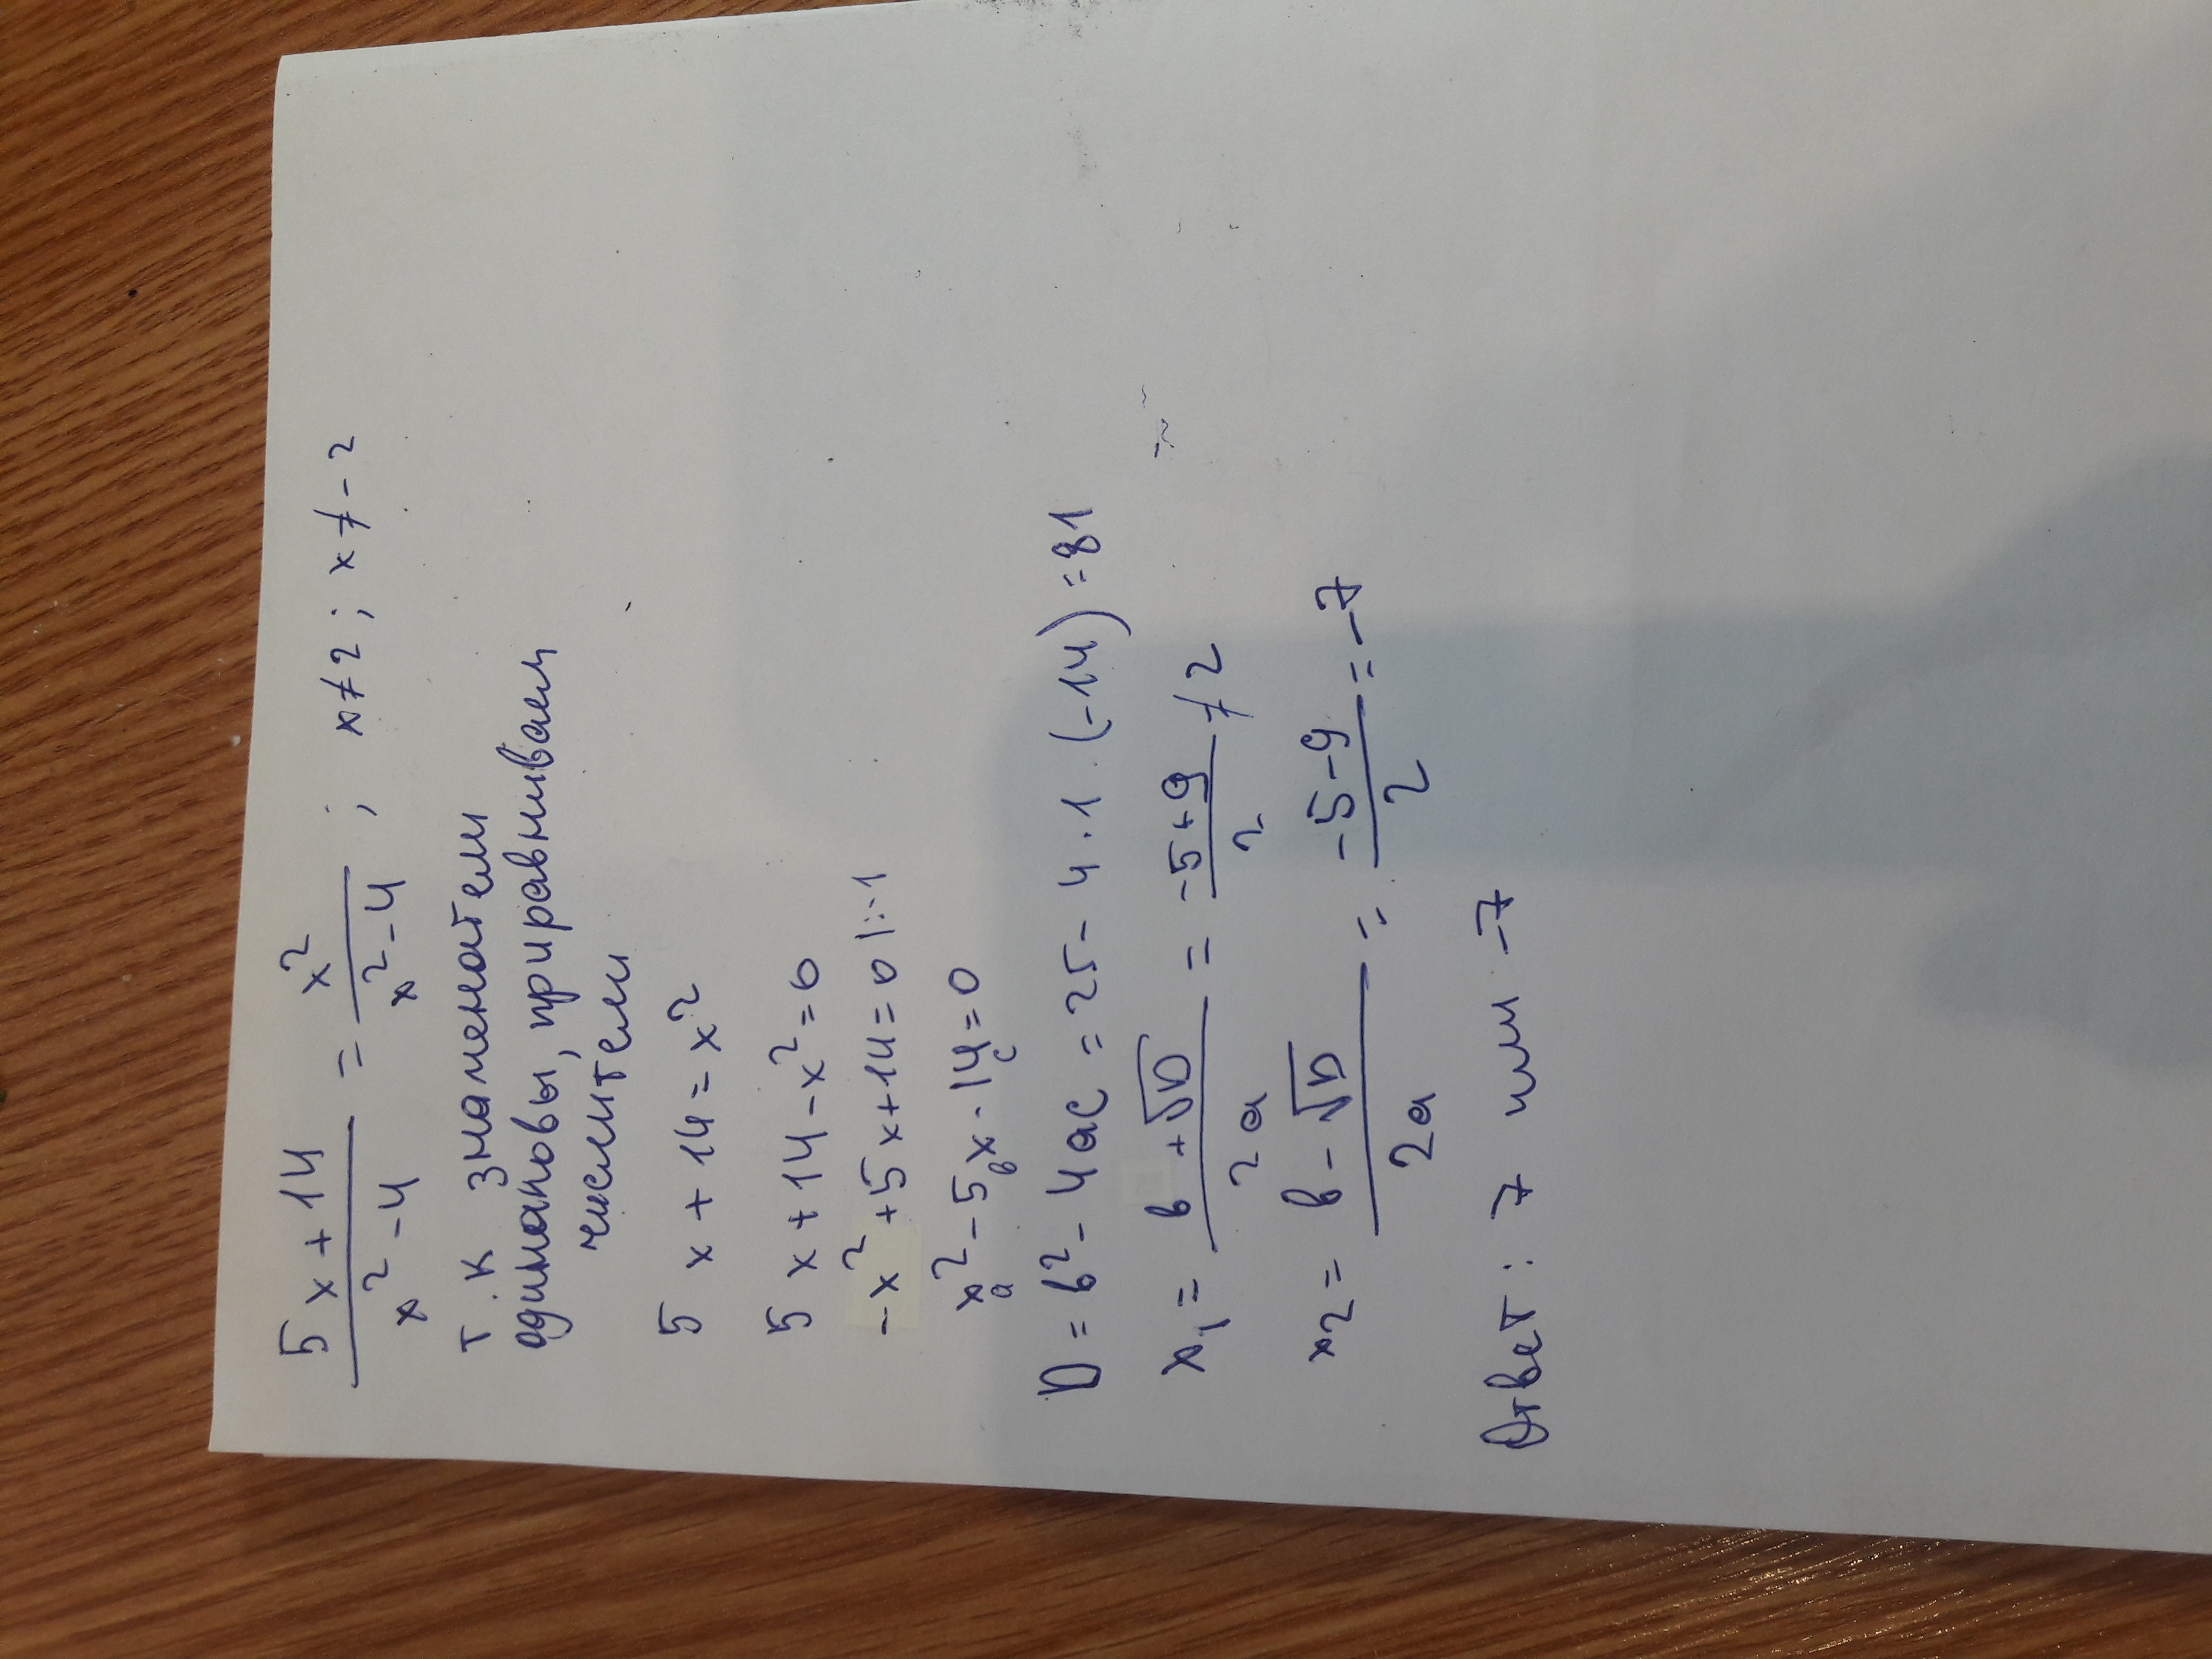 5x+14 / x²-4 = x² / x²-4 ; x≠2 ; x≠-2
т.к знаменатели
одинаковы, приравниваем
числители
5x+14=x²
5x+14-x²=0
-x²+5x+14=0 |:-1
x²-5x-14=0
a b c
D=b²-4ac=25-4·1·(-14)=81
x₁= b+√D / 2a = -5+9 / 2 ≠ 2
x2= b-√D / 2a = -5-9 / 2 =-7
Ответ: 7 или -7